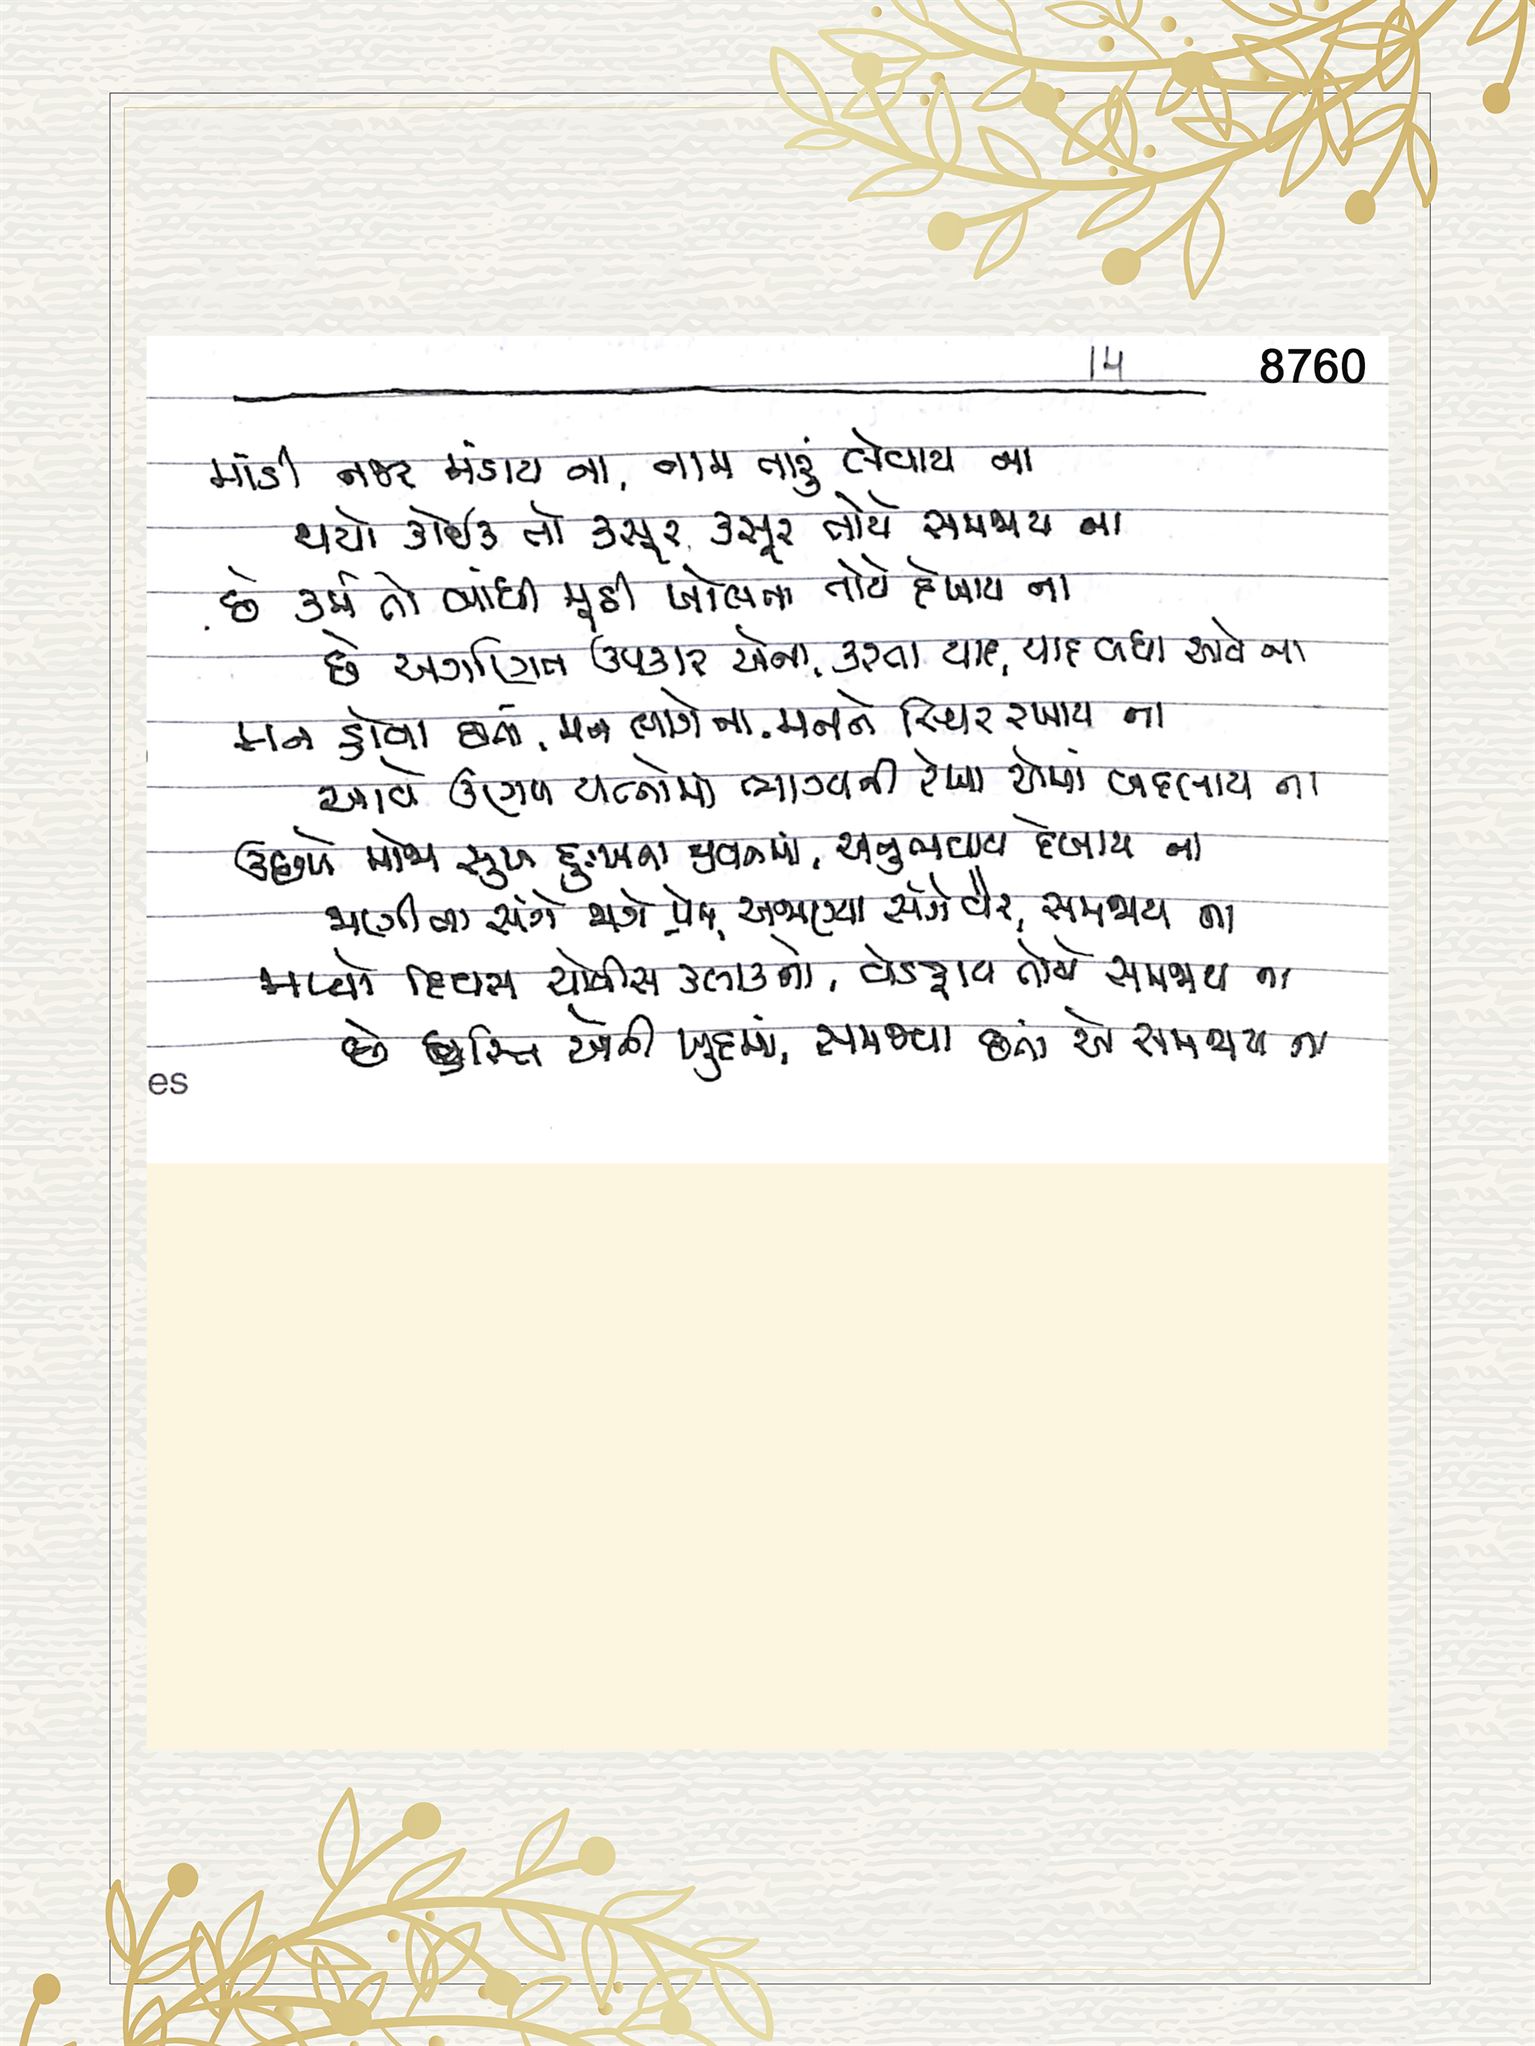 14
8760
માંડી નજર મંડાય ના, નામ તારું લેવાય ના
થયો કોઈક તો કસૂર, કસૂર તોયે સમજાય ના
છે કર્મ તો બાંધી મૂઠી ખોલતા તોયે દેખાય ના
છે અગણિત ઉપકાર એના, કરતા યાદ, યાદ બધા આવે ના
મન હોવા છતાં, મન લાગે ના. મનને સ્થિર રખાય ના
આવે ઉણપ યત્નોમાં ભાગ્યની રેખા એમાં બદલાય ના
ઉછળે મોજા સુખ દુઃખના જીવનમાં, અનુભવાય દેખાય ના
જાણીતા સંગે જાગે પ્રેમ, અજાણ્યા સંગે વૈર, સમજાય ના
મળ્યો દિવસ ચોવીસ કલાકનો, વેડફાય તોયે સમજાય ના
છે એની ખુદમાં, સમજવા છતાં એ સમજાય ના
es